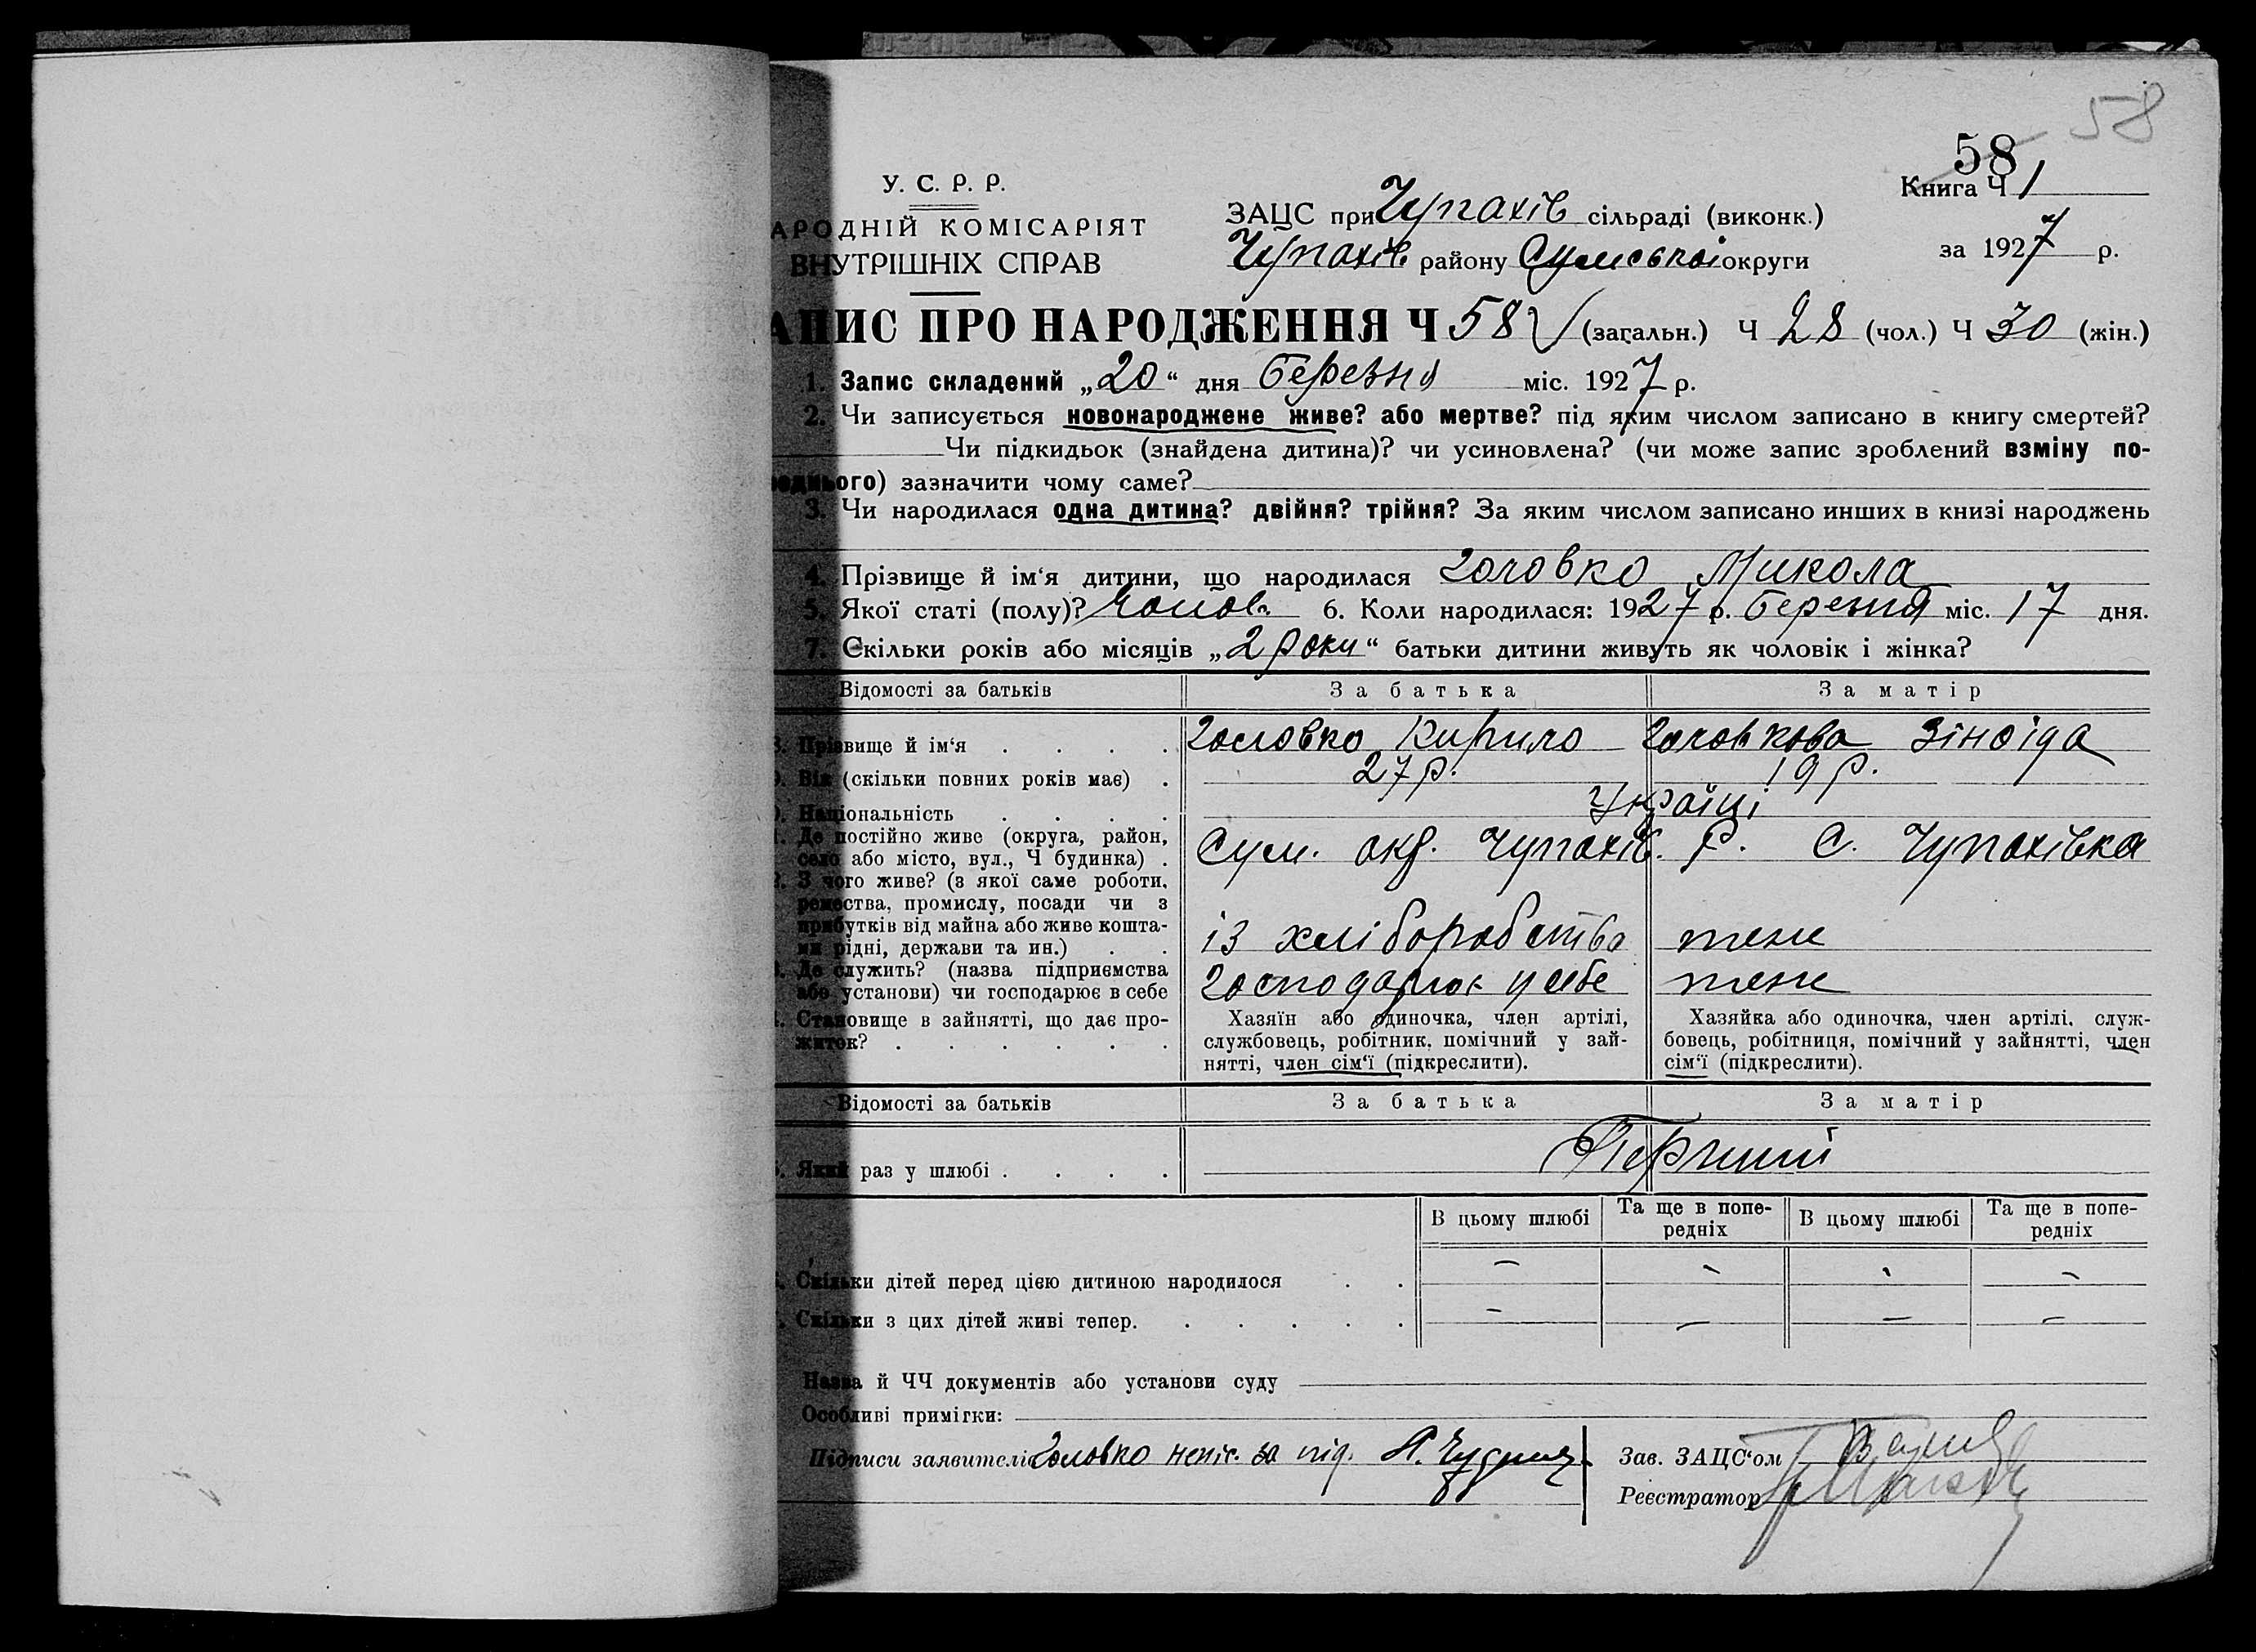 58
58
Книга Ч 1
У. С. Р. Р.
АРОДНІЙ КОМІСАРІЯТ
ВНУТРІШНІХ СПРАВ
ЗАЦС при Чупахів сільраді (виконк.)
Чупахів району Сумської округи
за 1927 р.
АПИС ПРО НАРОДЖЕННЯ Ч 58 (загальн.) Ч 28 (чол.) Ч 30 (жін.)
1. Запис складений „20“ дня березня міс. 1927 р.
2. Чи записується новонароджене живе? або мертве? під яким числом записано в книгу смертей?
Чи підкидьок (знайдена дитина)? чи усиновлена? (чи може запис зроблений взміну по-
реднього) зазначити чому саме?
3. Чи народилася одна дитина? двійня? трійня? За яким числом записано инших в книзі народжень
4. Прізвище й ім‘я дитини, що народилася Головко Микола
5. Якої статі (полу)? Чолов. 6. Коли народилася: 1927 р. березня міс. 17 дня.
7. Скільки років або місяців „2 роки“ батьки дитини живуть як чоловік і жінка?
Відомості за батьків За батька За матір
8. Прізвище й ім‘я . . . . Головко Кирило Головкова Зіноіда
9. Вік (скільки повних років має) . 27 р. 19 р.
0. Національність . . . . Українці
1. Де постійно живе (округа, район,
село або місто, вул., Ч будинка) . Сум. окр. Чупахів. Р. С. Чупахівка
2. З чого живе? (з якої саме роботи,
ремества, промислу, посади чи з
прибутків від майна або живе кошта-
ми рідні, держави та ин.) . . із хліборобства теж
3. Де служить? (назва підприємства
або установи) чи господарює в себе господарює у себе теж
4. Становище в зайнятті, що дає про-
житок? . . . . . .
Хазяїн або одиночка, член артілі,
службовець, робітник, помічний у зай-
нятті, член сім‘ї (підкреслити).
Хазяйка або одиночка, член артілі, служ-
бовець, робітниця, помічний у зайнятті, член
сім‘ї (підкреслити).
Відомості за батьків За батька За матір
5. Який раз у шлюбі . . . . Перший
В цьому шлюбі Та ще в попе-
редніх В цьому шлюбі Та ще в попе-
редніх
. Скільки дітей перед цією дитиною народилося . . – – – –
. Скільки з цих дітей живі тепер. . . . . . – – – –
Назва й ЧЧ документів або установи суду
Особливі примітки:
Підписи заявителів Головко непис. за під.
Зав. ЗАЦС‘ом
Реєстратор